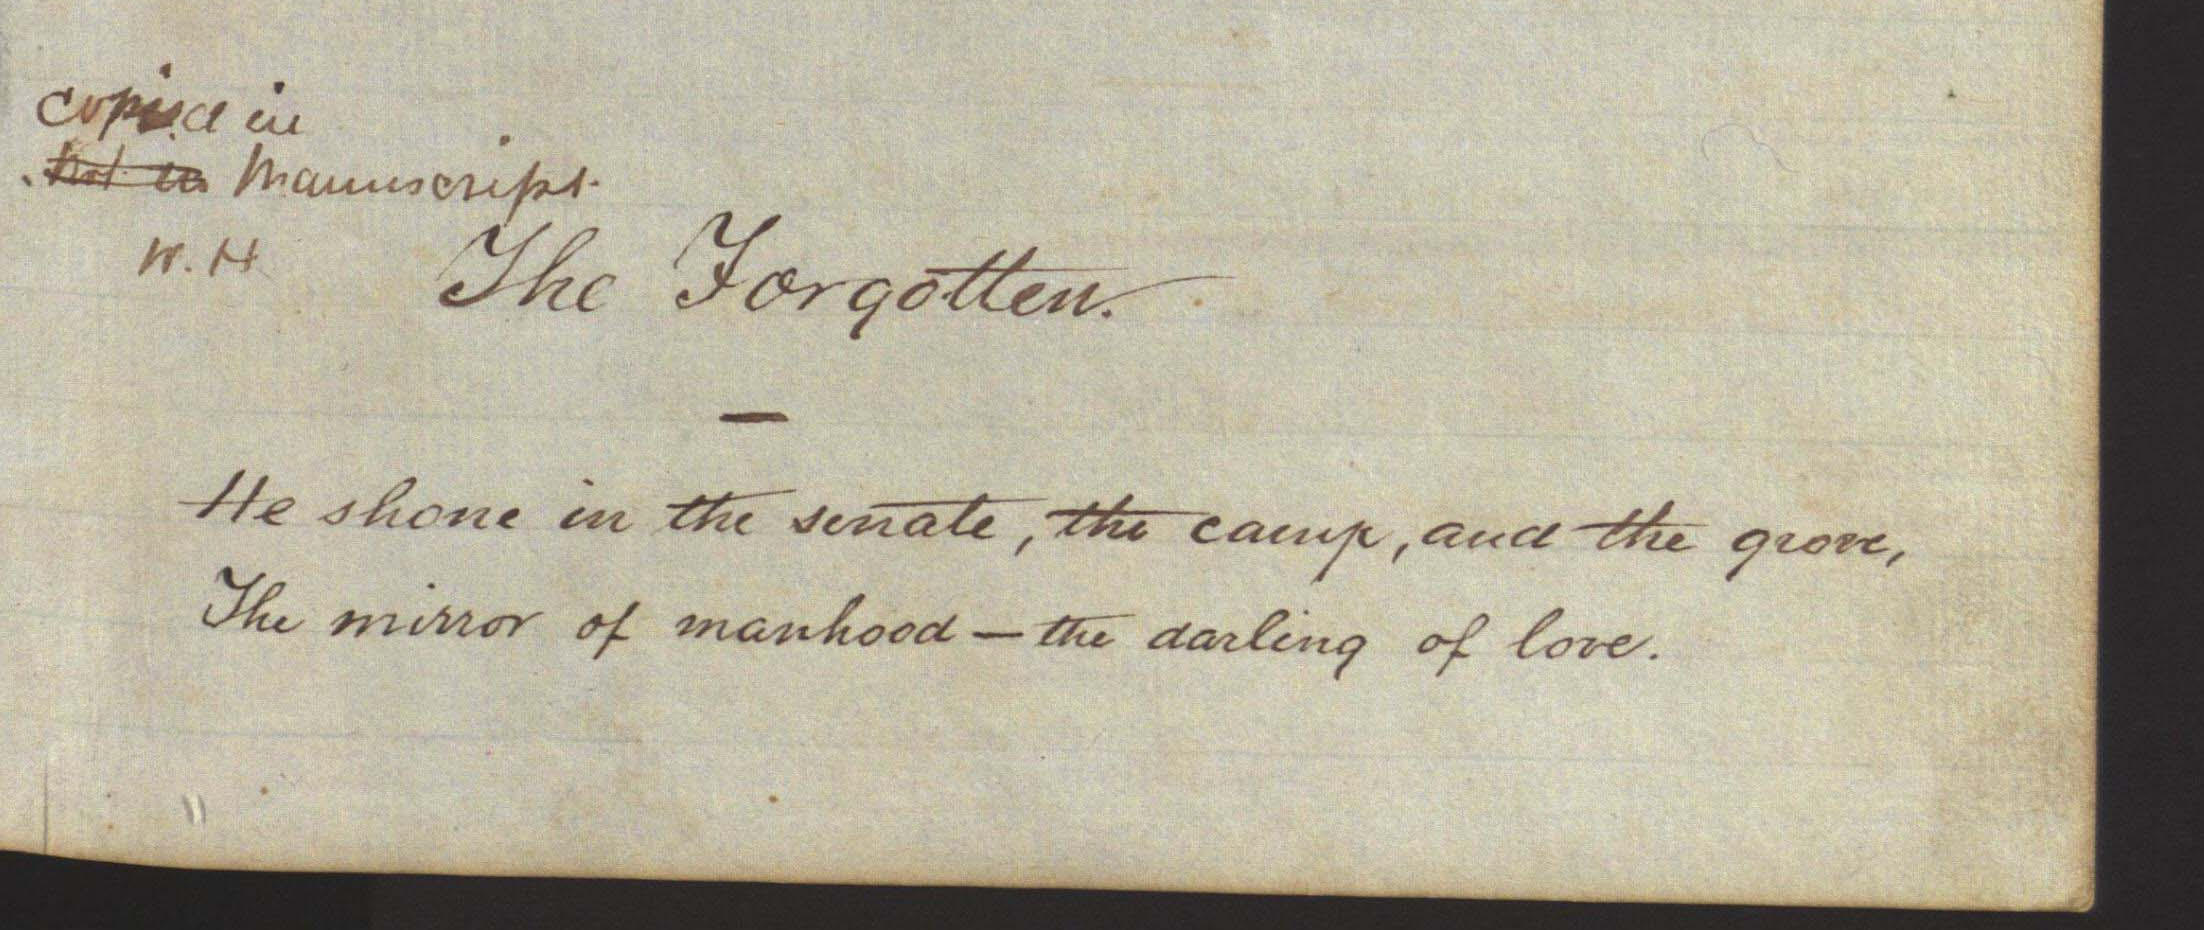 copied in
not in Manuscript.
W. H
The Forgotten.
—
He shone in the senate, the camp, and the grove,
The mirror of manhood — the darling of love.